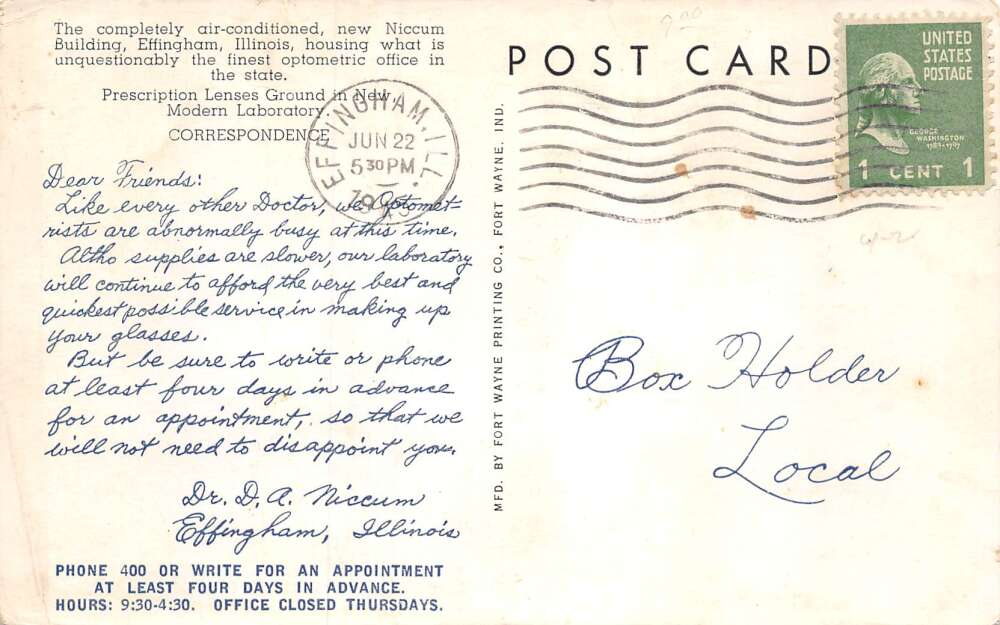 The completely air-conditioned, new Niccum
Building, Effingham, Illinois, housing what is
unquestionably the finest optometric office in
the state.
Prescription Lenses Ground in New,
Modern Laboratory.
CORRESPONDENCE
Dear Friends:
Like every other Doctor, we Optomet-
rists are abnormally busy at this time.
Altho supplies are slower, our laboratory
will continue to afford the very best and
quickest possible service in making up
your glasses.
But be sure to write or phone
at least four days in advance
for an appointment, so that we
will not need to disappoint you.
Dr. D. A. Niccum
Effingham, Illinois
PHONE 400 OR WRITE FOR AN APPOINTMENT
AT LEAST FOUR DAYS IN ADVANCE.
HOURS: 9:30-4:30. OFFICE CLOSED THURSDAYS.
EFFINGHAM, ILL.
JUN 22
5 30 PM
MFD. BY FORT WAYNE PRINTING CO., FORT WAYNE, IND.
POST CARD
UNITED
STATES
POSTAGE
GEORGE
WASHINGTON
1789-1797
1 CENT 1
Box Holder
Local